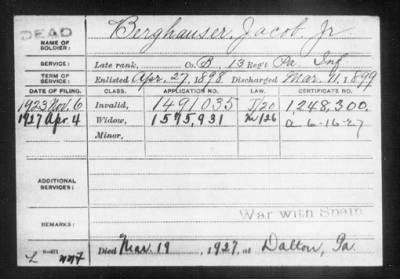 DEAD
NAME OF SOLDIER: Berghauser, Jacob, Jr
SERVICE: Late rank, Co. B, 13 Reg't Pa. Inf
TERM OF SERVICE: Enlisted Apr. 27, 1898 Discharged Mar. 11, 1899
DATE OF FILING. CLASS. APPLICATION NO. LAW. CERTIFICATE NO.
1923 Nov. 6 Invalid, 1491035 J/20 1,248,300.
1927 Apr. 4 Widow, 1575,931 a 6-16-27
Minor,
ADDITIONAL SERVICES:
War with Spain
REMARKS:
Died Mar. 19, 1927, at Dalton, Pa.